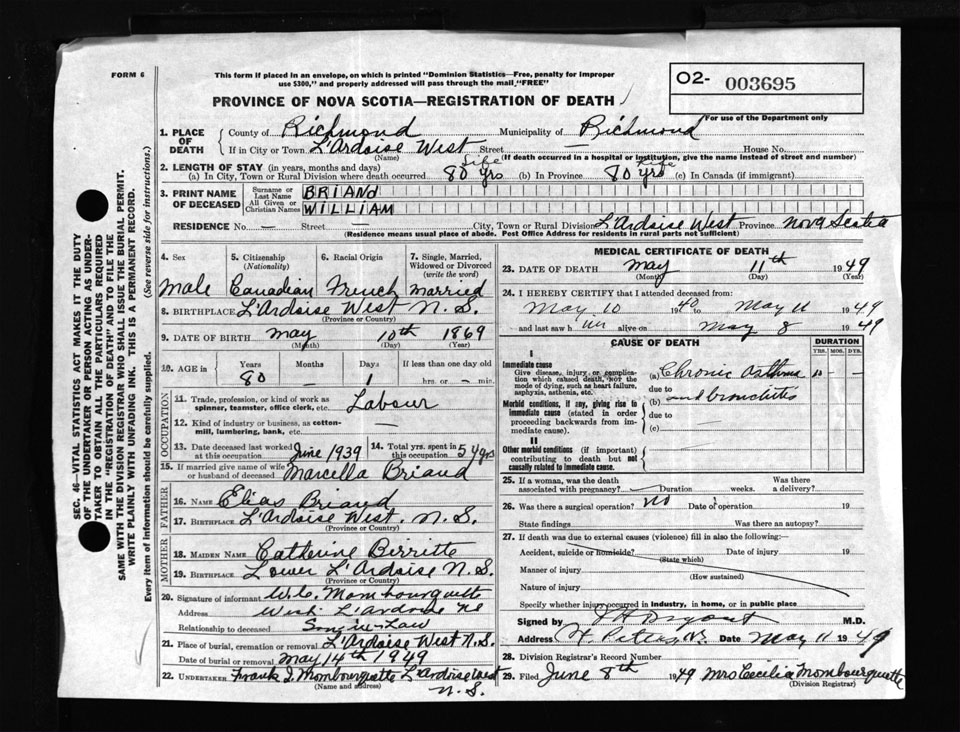 FORM 6
This form if placed in an envelope, on which is printed "Dominion Statistics—Free, penalty for improper
use $300," and properly addressed will pass through the mail "FREE"
O2- 003695
PROVINCE OF NOVA SCOTIA—REGISTRATION OF DEATH
For use of the Department only
1. PLACE OF DEATH
County of Richmond Municipality of Richmond
If in City or Town L'Ardoise West Street — House No.
(Name) (If death occurred in a hospital or institution, give the name instead of street and number)
2. LENGTH OF STAY (in years, months and days) Life Life
(a) In City, Town or Rural Division where death occurred 80 yrs (b) In Province 80 yrs (c) In Canada (if immigrant)
3. PRINT NAME OF DECEASED
Surname or Last Name BRIAND
All Given or Christian Names WILLIAM
RESIDENCE No. — Street — City, Town or Rural Division L'Ardoise West Province Nova Scotia
(Residence means usual place of abode. Post Office Address for residents in rural parts not sufficient)
4. Sex 5. Citizenship (Nationality) 6. Racial Origin 7. Single, Married, Widowed or Divorced (write the word)
Male Canadian French Married
8. BIRTHPLACE L'Ardoise West N.S.
(Province or Country)
9. DATE OF BIRTH May 10th 1869
(Month) (Day) (Year)
10. AGE in Years Months Days If less than one day old
80 — 1 hrs or — min.
OCCUPATION
11. Trade, profession, or kind of work as spinner, teamster, office clerk, etc. Labour
12. Kind of industry or business, as cotton-mill, lumbering, bank, etc. —
13. Date deceased last worked at this occupation June 1939 14. Total yrs. spent in this occupation 54 yrs
15. If married give name of wife or husband of deceased Marcella Briand
FATHER
16. NAME Elias Briand
17. BIRTHPLACE L'Ardoise West. N.S.
(Province or Country)
MOTHER
18. MAIDEN NAME Catherine Birritte
19. BIRTHPLACE Lower L'Ardoise N.S.
(Province or Country)
20. Signature of informant Mombourquette
Address West L'Ardoise NS
Relationship to deceased Son in Law
21. Place of burial, cremation or removal L'Ardoise West N.S.
Date of burial or removal May 14th 1949
22. UNDERTAKER Frank J. Mombourquette L'ardoise West
(Name and address) N.S.
MEDICAL CERTIFICATE OF DEATH
23. DATE OF DEATH May 11th 1949
(Month) (Day)
24. I HEREBY CERTIFY that I attended deceased from:
May 10 1940 to May 11 1949
and last saw him alive on May 8 1949
CAUSE OF DEATH DURATION
YRS. MOS. DYS.
I
Immediate cause
Give disease, injury, or complication which caused death, NOT the mode of dying, such as heart failure, asphyxia, asthenia, etc.
(a) Chronic Asthma 10 — —
due to
Morbid conditions, if any, giving rise to immediate cause (stated in order proceeding backwards from immediate cause).
(b) and bronchitis
due to
(c)
II
Other morbid conditions (if important) contributing to death but not causally related to immediate cause.
25. If a woman, was the death associated with pregnancy? Duration weeks. Was there a delivery?
26. Was there a surgical operation? No Date of operation 19
State findings Was there an autopsy?
27. If death was due to external causes (violence) fill in also the following:—
Accident, suicide or homicide? Date of injury 19
(State which)
Manner of injury
(How sustained)
Nature of injury
Specify whether injury occurred in industry, in home, or in public place
Signed by M.D.
Address St Peters, N.S. Date May 11 1949
28. Division Registrar's Record Number
29. Filed June 8th 1949 Mrs Cecilia Mombourquette
(Division Registrar)
SEC. 46—VITAL STATISTICS ACT MAKES IT THE DUTY
OF THE UNDERTAKER OR PERSON ACTING AS UNDER-
TAKER TO OBTAIN ALL THE PARTICULARS REQUIRED
IN THE "REGISTRATION OF DEATH" AND TO FILE THE
SAME WITH THE DIVISION REGISTRAR WHO SHALL ISSUE THE BURIAL PERMIT.
WRITE PLAINLY WITH UNFADING INK. THIS IS A PERMANENT RECORD.
Every item of information should be carefully supplied. (See reverse side for instructions.)